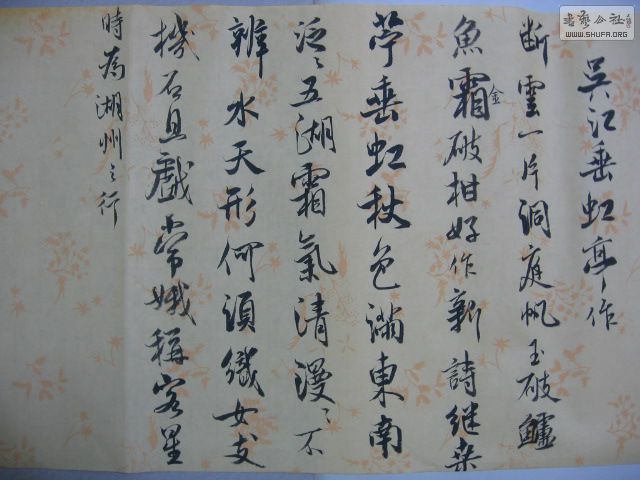 吳江垂虹亭作
断雲一片洞庭帆玉破鱸
魚霜金破柑好作新詩継桒
苧垂虹秋色滿東南
泛〻五湖霜氣清漫〻不
辨水天形何須織女支
機石且戲常娥稱客星
時為湖州之行
書藝公社
WWW.SHUFA.ORG